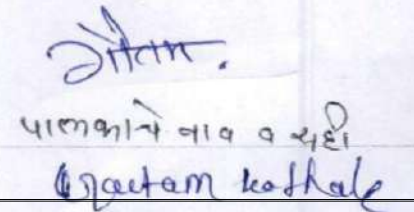 गौतम.
पालकाचे नाव व सही
Gautam Kothale